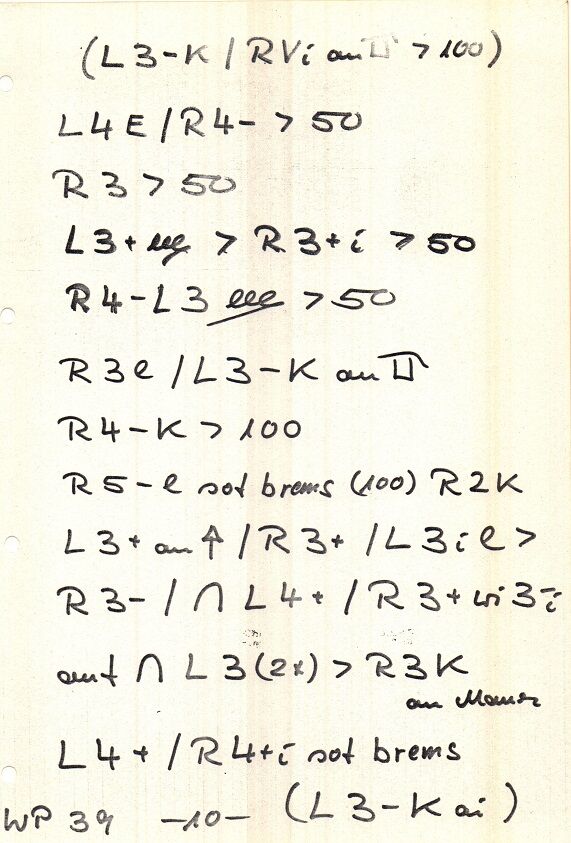 (L3-K / RVi an > 100)
L4E / R4- > 50
R3 > 50
L3+ eeg > R3+i > 50
R4-L3 eee > 50
R3e / L3-K an
R4-K > 100
R5-e sot brems (100) R2K
L3+ an ↑ / R3+ / L3ie >
R3- / ∩ L4+ / R3+ wi 3-i
auf ∩ L3(2x) > R3K
an Mauer
L4+ / R4+i sot brems
WP 39 -10- (L3-K ai)